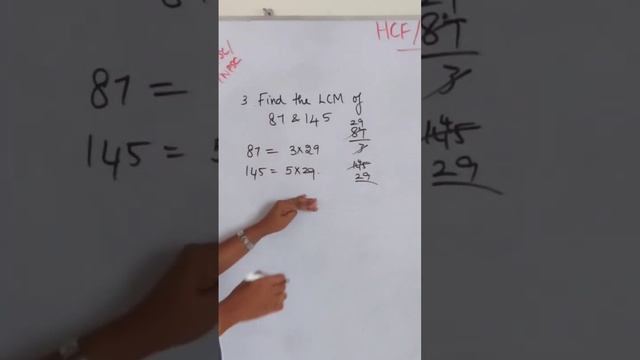 HCF/
3 Find the LCM of
87 & 145
87 = 3×29
145 = 5×29.
29
87
3
145
29